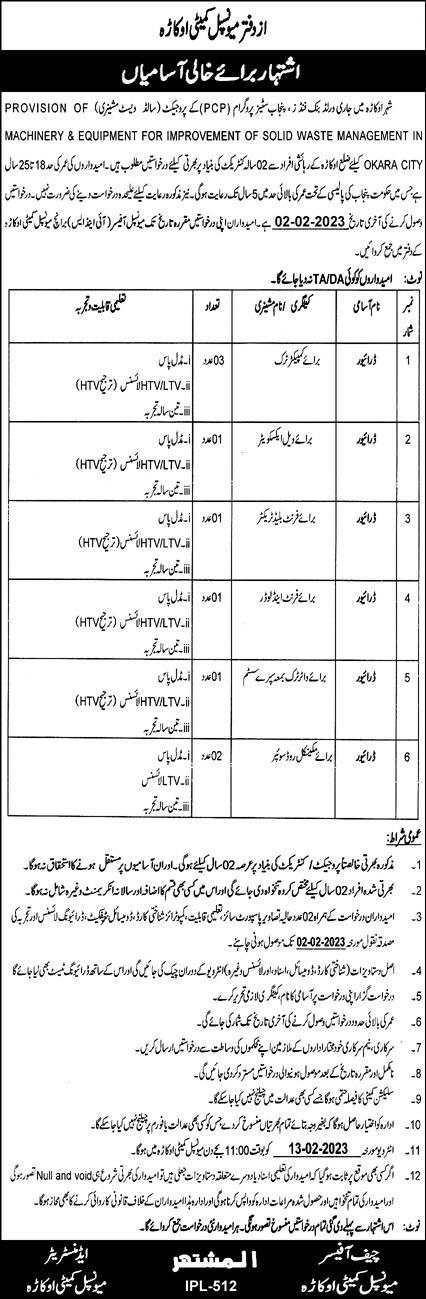 از دفتر میونسپل کمیٹی اوکاڑہ
اشتہار برائے خالی آسامیاں
شہر اوکاڑہ میں جاری ورلڈ بنک فنڈز، پنجاب سٹیز پروگرام (PCP) کے پروجیکٹ (سالڈ ویسٹ مشینری) PROVISION OF
MACHINERY & EQUIPMENT FOR IMPROVEMENT OF SOLID WASTE MANAGEMENT IN
OKARA CITY کیلئے ضلع اوکاڑہ کے رہائشی افراد سے 02 سالہ کنٹریکٹ کی بنیاد پر بھرتی کیلئے درخواستیں مطلوب ہیں۔ امیدواروں کی عمر کی حد 18 تا 25 سال
ہے جس میں حکومت پنجاب کی پالیسی کے تحت عمر کی بالائی حد میں 5 سال تک رعایت ہوگی۔ نیز مذکورہ رعایت کیلئے علیحدہ درخواست دینے کی ضرورت نہیں۔ درخواستیں
وصول کرنے کی آخری تاریخ 02-02-2023 ہے۔ امیدواران اپنی درخواستیں مقررہ تاریخ تک میونسپل آفیسر (آئی اینڈ ایس) برانچ میونسپل کمیٹی اوکاڑہ
کے دفتر میں جمع کروائیں۔
نوٹ: امیدواروں کو کوئی TA/DA نہ دیا جائے گا۔
نمبر شمار نام آسامی کیٹگری / نام مشینری تعداد تعلیمی قابلیت و تجربہ
1 ڈرائیور برائے کمپیکٹر ٹرک 03 عدد i۔ مڈل پاس
ii۔ HTV/LTV لائسنس (ترجیح HTV)
iii۔ تین سالہ تجربہ
2 ڈرائیور برائے ویل ایکسکویٹر 01 عدد i۔ مڈل پاس
ii۔ HTV/LTV لائسنس (ترجیح HTV)
iii۔ تین سالہ تجربہ
3 ڈرائیور برائے فرنٹ بلیڈ ٹریکٹر 01 عدد i۔ مڈل پاس
ii۔ HTV/LTV لائسنس (ترجیح HTV)
iii۔ تین سالہ تجربہ
4 ڈرائیور برائے فرنٹ اینڈ لوڈر 01 عدد i۔ مڈل پاس
ii۔ HTV/LTV لائسنس (ترجیح HTV)
iii۔ تین سالہ تجربہ
5 ڈرائیور برائے واٹر ٹرک بمعہ سپرے سسٹم 01 عدد i۔ مڈل پاس
ii۔ HTV/LTV لائسنس (ترجیح HTV)
iii۔ تین سالہ تجربہ
6 ڈرائیور برائے مکینیکل روڈ سویپر 02 عدد i۔ مڈل پاس
ii۔ LTV لائسنس
iii۔ تین سالہ تجربہ
عمومی شرائط:
1۔ مذکورہ بھرتی خالصتاً پروجیکٹ / کنٹریکٹ کی بنیاد پر عرصہ 02 سال کیلئے ہوگی۔ اور ان آسامیوں پر مستقل ہونے کا استحقاق نہ ہوگا۔
2۔ بھرتی شدہ افراد 02 سال کیلئے مختص کردہ تنخواہ دی جائے گی اور اس میں کسی بھی قسم کا اضافہ اور سالانہ انکریمنٹ وغیرہ شامل نہ ہوگا۔
3۔ امیدواران درخواست کے ہمراہ 02 عدد حالیہ تصاویر پاسپورٹ سائز، تعلیمی قابلیت، کمپیوٹرائز شناختی کارڈ، ڈومیسائل سرٹیفکیٹ، ڈرائیونگ لائسنس اور تجربہ کی
مصدقہ نقول مورخہ 02-02-2023 تک موصول ہونی چاہیے۔
4۔ اصل دستاویزات (شناختی کارڈ، ڈومیسائل، اسناد، اور لائسنس وغیرہ) انٹرویو کے دوران چیک کی جائیں گی اور اس کے ساتھ ڈرائیونگ ٹیسٹ بھی لیا جائے گا
5۔ درخواست گزار اپنی درخواست پر آسامی کا نام، کیٹگری لازمی تحریر کرے۔
6۔ عمر کی بالائی حد درخواستیں وصول کرنے کی آخری تاریخ تک شمار کی جائے گی۔
7۔ سرکاری، نیم سرکاری خود مختار اداروں کے ملازمین اپنے محکموں کی وساطت سے درخواستیں ارسال کریں۔
8۔ نامکمل اور مقررہ تاریخ کے بعد موصول ہونیوالی درخواستیں مسترد کر دی جائیں گی۔
9۔ سلیکشن کمیٹی کا فیصلہ حتمی ہوگا جسے کسی بھی عدالت میں چیلنج نہیں کیا جا سکے گا۔
10۔ ادارہ کو اختیار حاصل ہوگا کہ بغیر وجہ بتائے تمام بھرتیاں منسوخ کر دے جس کو کسی بھی عدالت یا فورم پر چیلنج نہیں کیا جا سکے گا۔
11۔ انٹرویو مورخہ 13-02-2023 کو بوقت 11:00 بجے دن میونسپل کمیٹی اوکاڑہ میں ہوگا۔
12۔ اگر کسی بھی موقع پر ثابت ہو گیا کہ امیدوار کی تعلیمی اسناد یا دوسرے متعلقہ دستاویزات جعلی ہیں تو امیدوار کی بھرتی شروع ہی Null and void تصور ہوگی
اور امیدوار کی تمام تنخواہیں اور حصول شدہ مراعات ادارہ کو واپس کرنا ہوگی اور ادارہ ہذا امیدواران کے خلاف قانونی کاروائی کرنے کا بھی مجاز ہوگا۔
نوٹ: اس اشتہار سے پہلے دی گئی تمام درخواستیں منسوخ تصور ہوگی۔ ہر امیدوار نئی درخواست جمع کروائے گا۔
المشتہر
چیف آفیسر
میونسپل کمیٹی اوکاڑہ
IPL-512
ایڈمنسٹریٹر
میونسپل کمیٹی اوکاڑہ